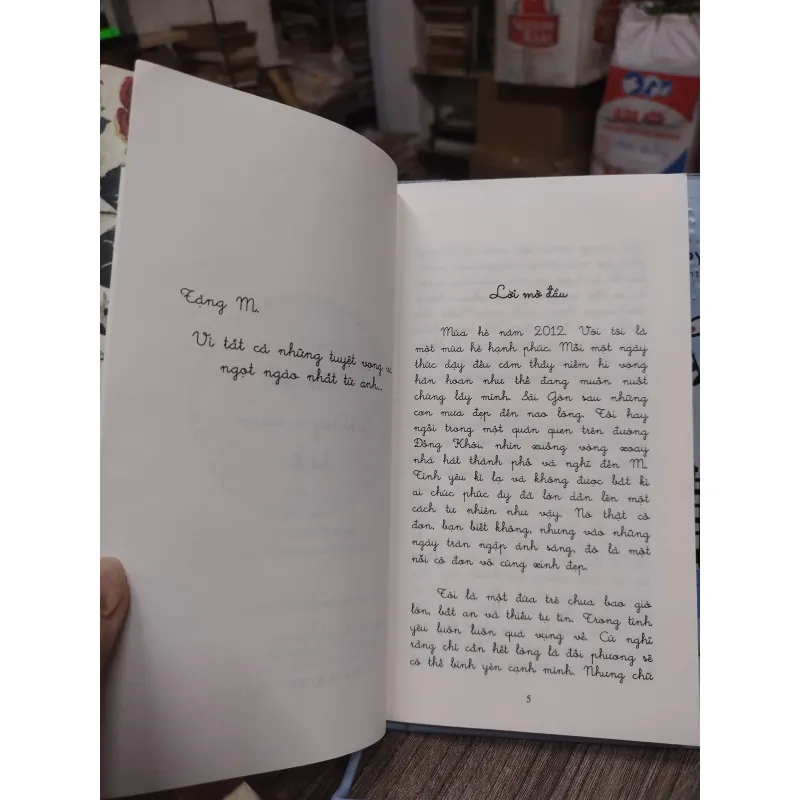 Tặng M.
Vì tất cả những tuyệt vọng và
ngọt ngào nhất từ anh...
Lời mở đầu
Mùa hè năm 2012. Với tôi là
một mùa hè hạnh phúc. Mỗi một ngày
thức dậy đều cảm thấy niềm hi vọng
hân hoan như thể đang muốn nuốt
chửng lấy mình. Sài Gòn sau những
cơn mưa đẹp đến nao lòng. Tôi hay
ngồi trong một quán quen trên đường
Đồng Khởi, nhìn xuống vòng xoay
nhà hát thành phố và nghĩ đến M.
Tình yêu kì lạ và không được bất kì
ai chúc phúc ấy đã lớn dần lên một
cách tự nhiên như vậy. Nó thật cô
đơn, bạn biết không, nhưng vào những
ngày tràn ngập ánh sáng, đó là một
nỗi cô đơn vô cùng xinh đẹp.
Tôi là một đứa trẻ chưa bao giờ
lớn, bất an và thiếu tự tin. Trong tình
yêu luôn luôn quá vụng về. Cứ nghĩ
rằng chỉ cần hết lòng là đối phương sẽ
có thể bình yên cạnh mình. Nhưng chữ
5